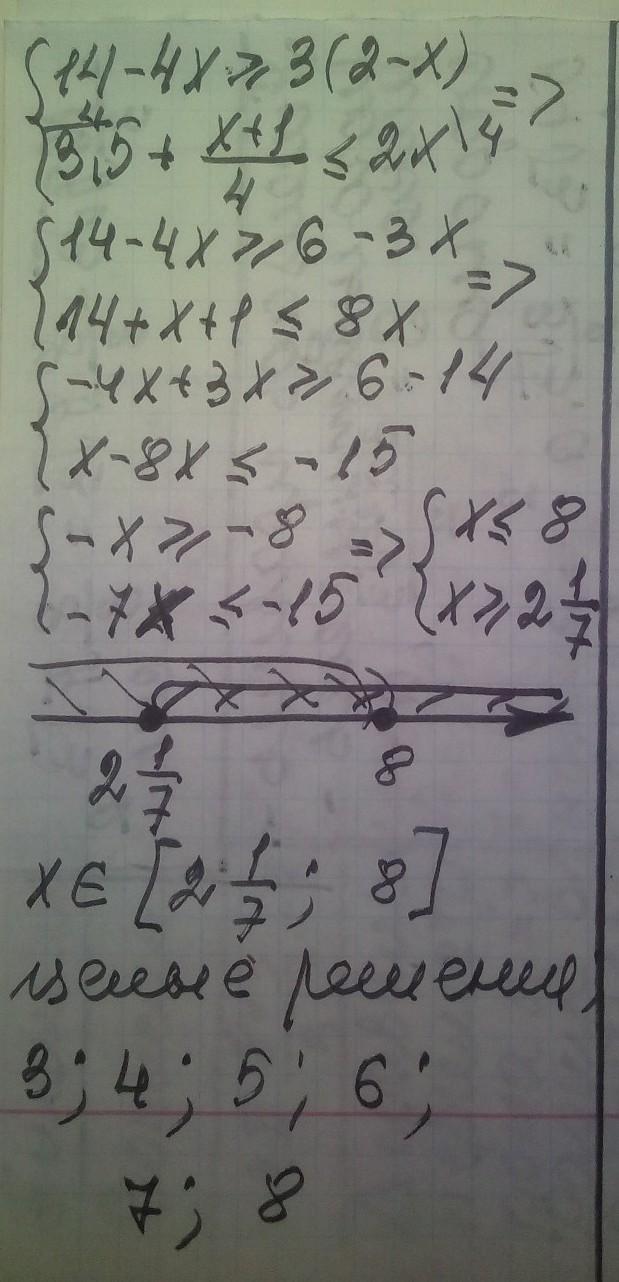 {14-4x ≥ 3(2-x) =>
{4/ 3,5 + (x+1)/4 ≤ 2x\4
{14-4x ≥ 6-3x =>
{14+x+1 ≤ 8x
{-4x+3x ≥ 6-14
{x-8x ≤ -15
{-x ≥ -8 => {x ≤ 8
{-7x ≤ -15 {x ≥ 2 1/7
2 1/7 8
x ∈ [2 1/7; 8]
целые решения,
3; 4; 5; 6;
7; 8